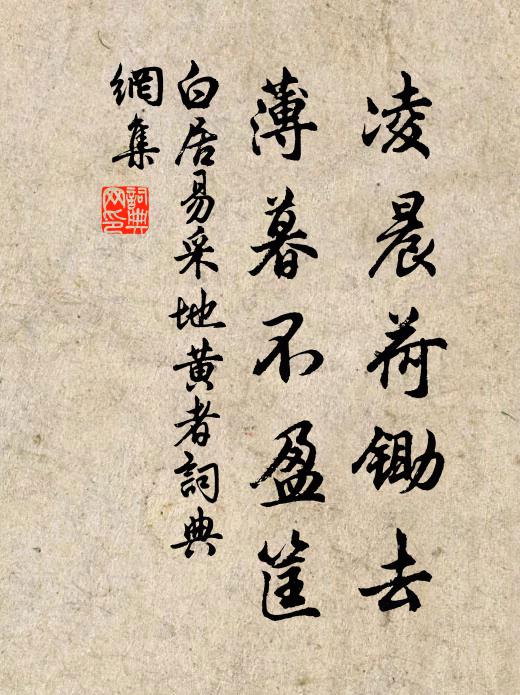 凌晨荷锄去
薄暮不盈筐
白居易采地黄者詞典
網集
詞典
网印